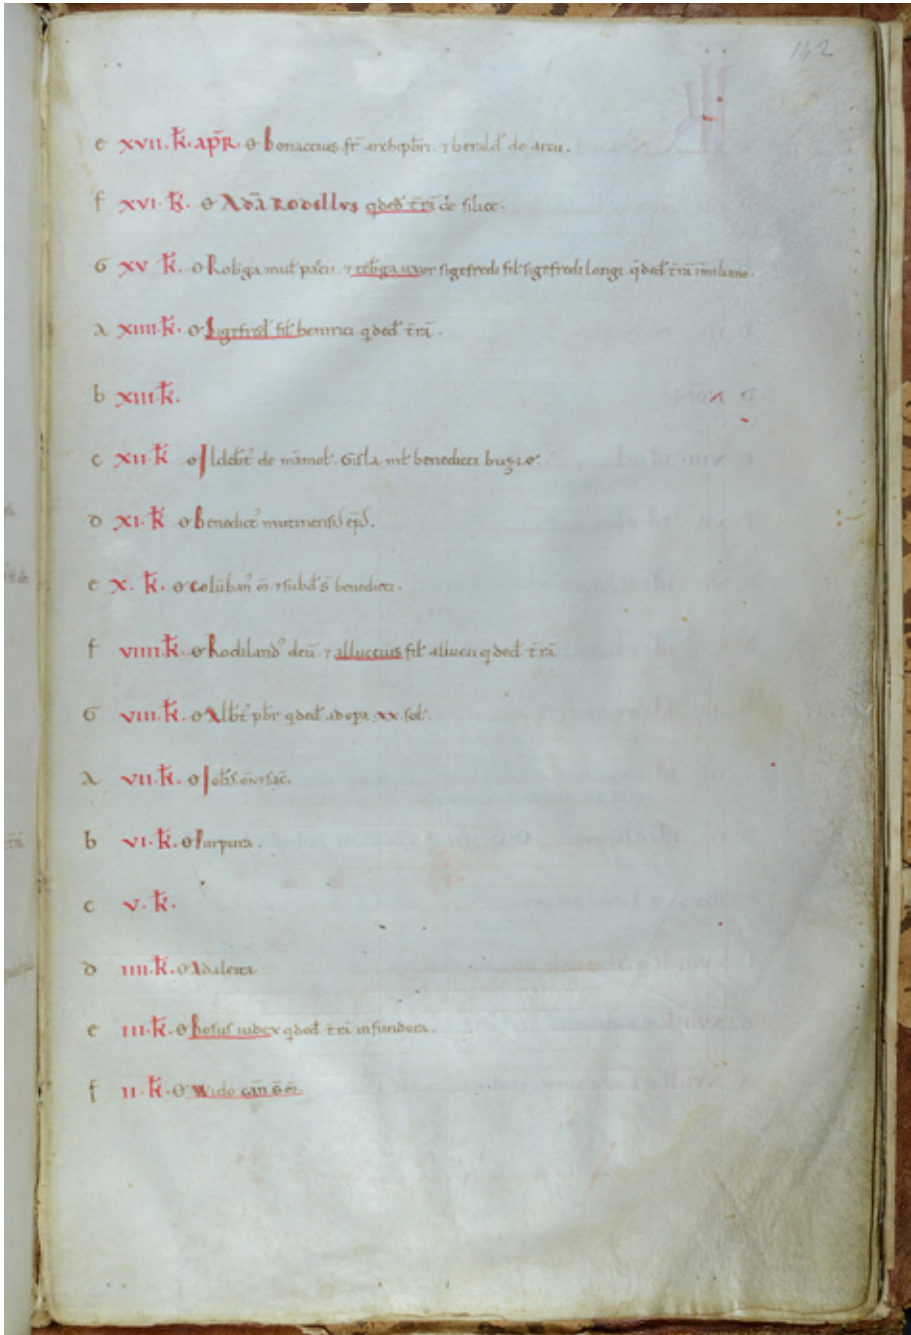 142
e XVII. k̄. ap̄r. o bonaccius fr̄ archip̄bri. ⁊ berald' de arcu.
f XVI. k̄. o Adā Rodellus q̄ ded' t̄rā de silice.
G XV k̄. o Rob̄ga mul' pasci. ⁊ teb̄ga uxor sigefredi fil' sigefredi longi. q̄ ded' t̄rā
a XIIII. k̄. o Sigefred' fil' henrici q̄ ded' t̄rā.
b XIII k̄.
c XII. k̄ o Ildeb̄t' de mamot'. Gisla mt̄ benedicti
d XI. k̄ o benedict' mutinensis ep̄s.
e X. k̄. o Colūban' ⁊ subd' s̄ benedicti.
f VIIII. k̄. o Rodiland' ⁊ alluccius fil' alluccii q̄ ded' t̄rā
G VIII. k̄. o Alb̄t' p̄br q̄ ded' ad opa xx. sol'.
a VII. k̄. o Ioh̄s. ⁊ sac̄.
b VI. k̄. o Purpura.
c V. k̄.
d IIII. k̄. o Adaleita
e III. k̄. o bosus iudex q̄ ded' t̄rā in fundora.
f II. k̄. o Wido can̄